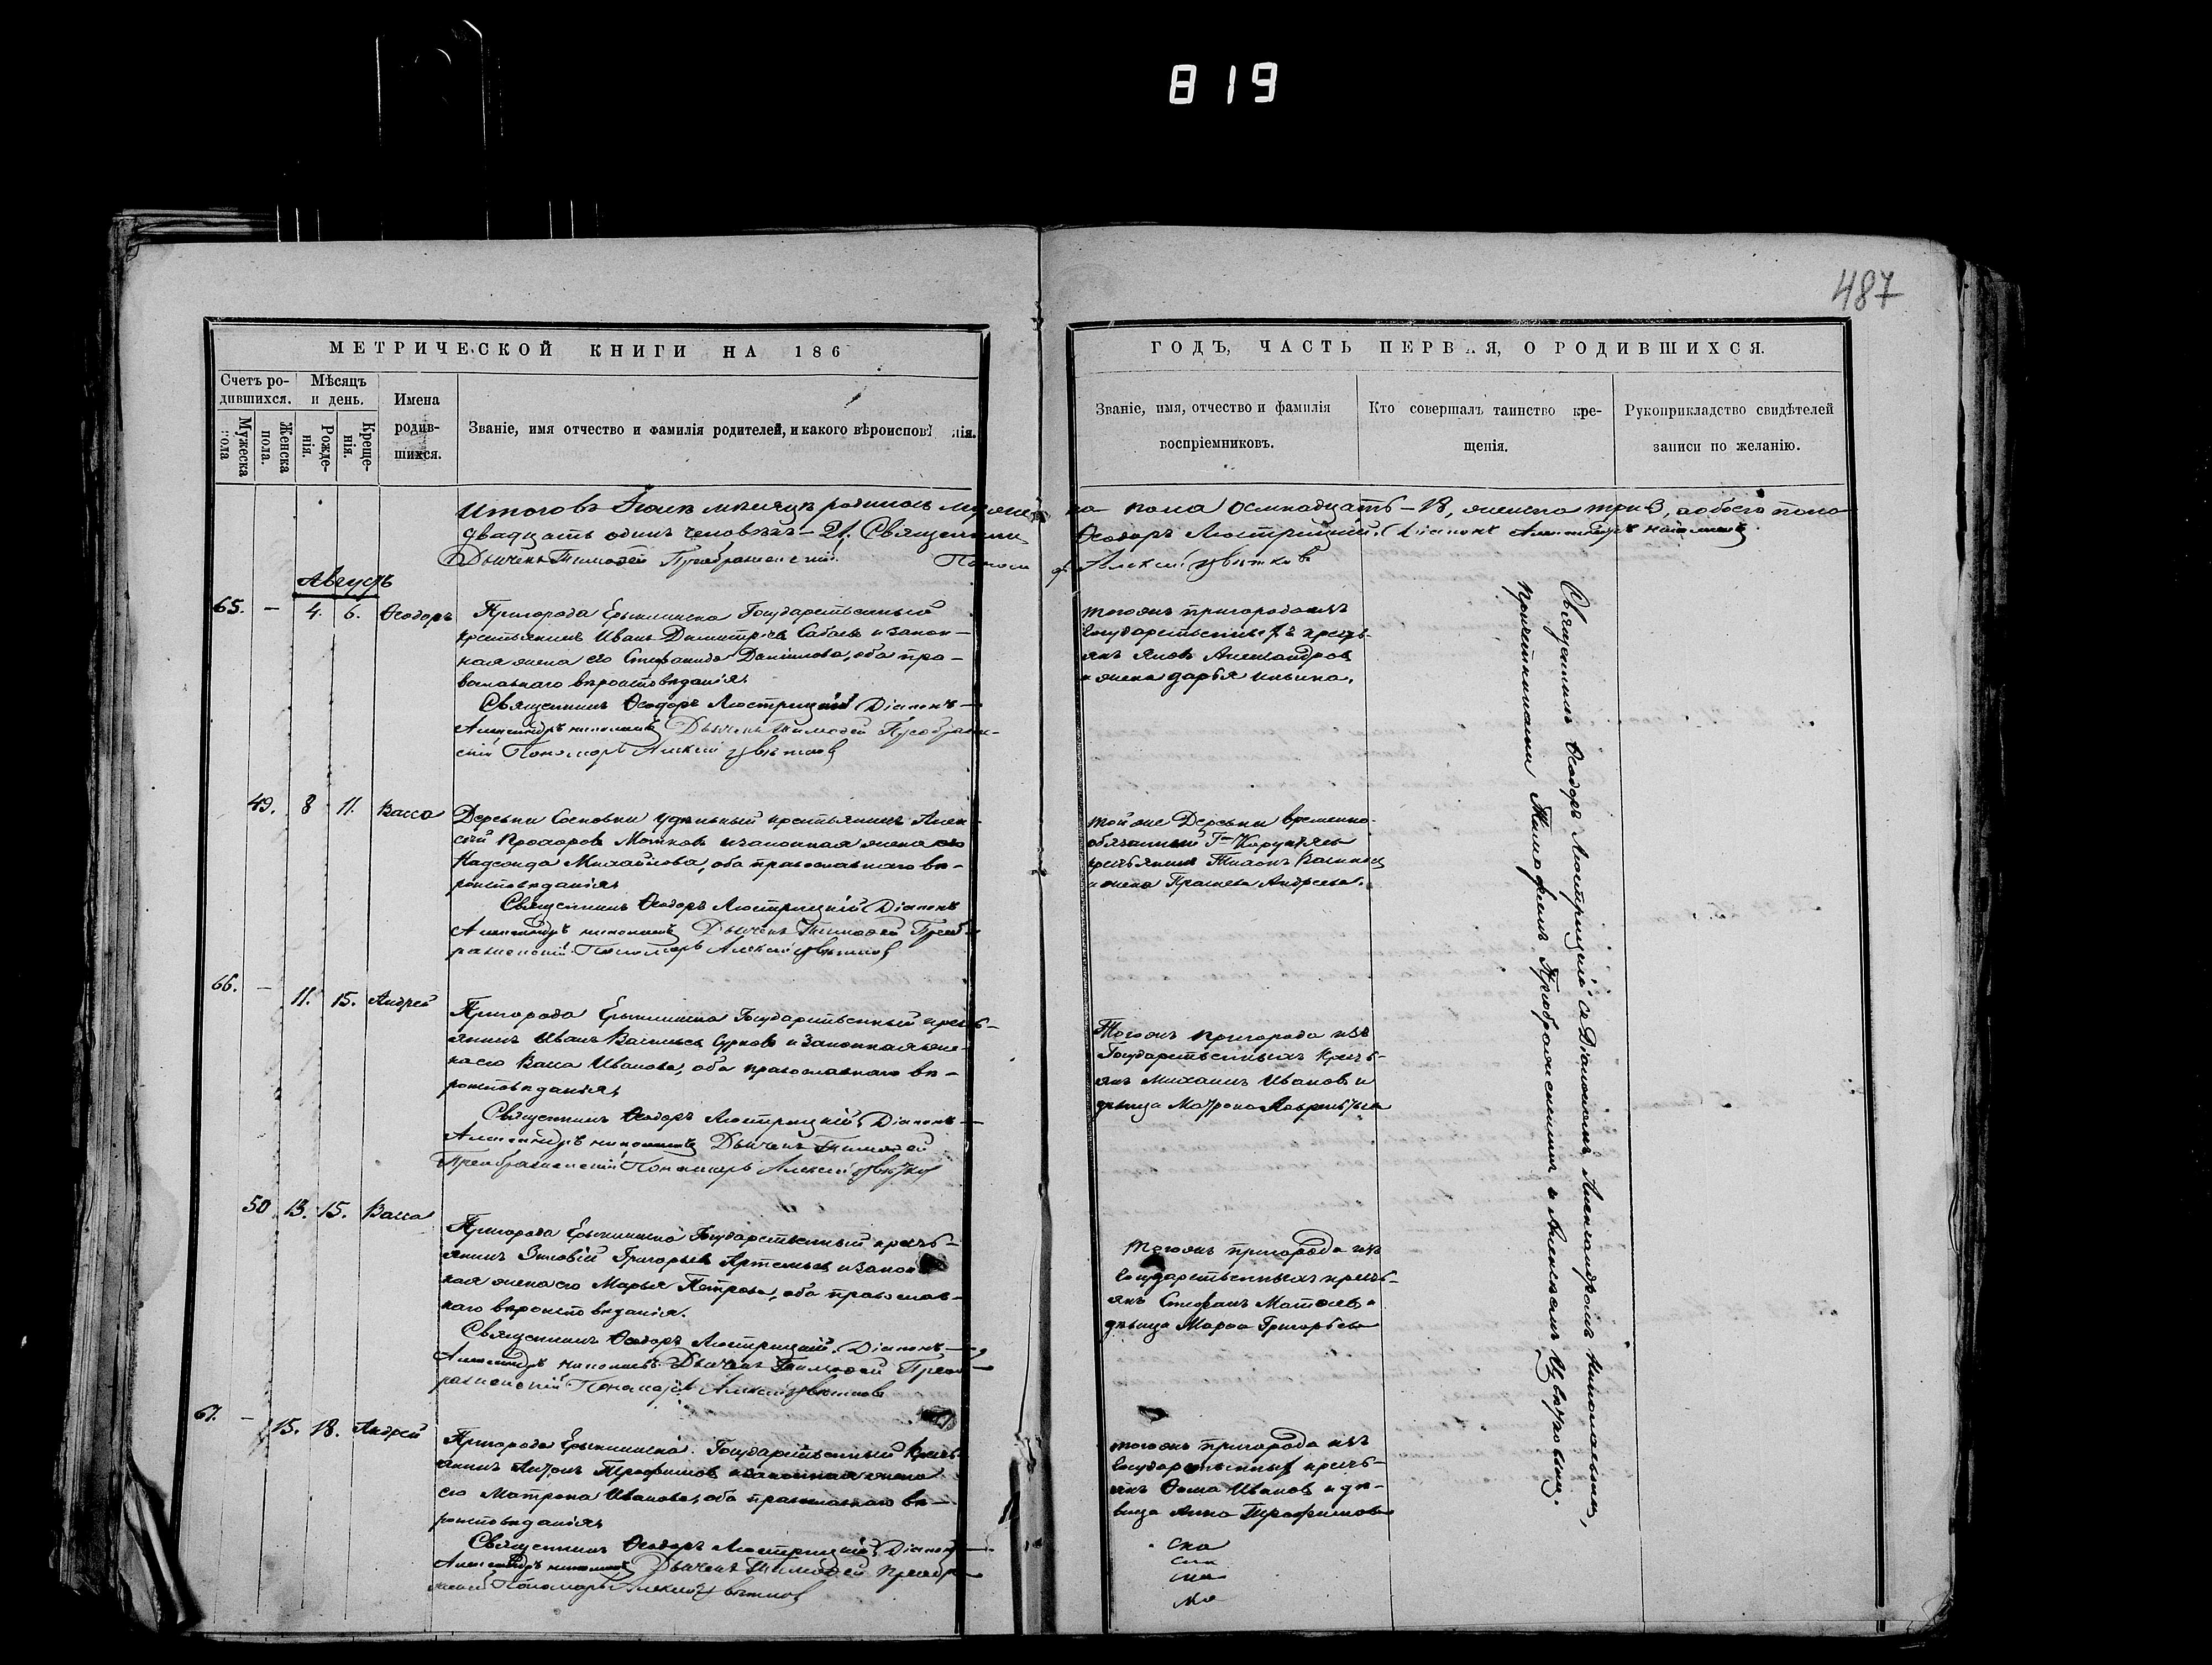 819
487
МЕТРИЧЕСКОЙ КНИГИ НА 186
ГОДЪ, ЧАСТЬ ПЕРВАЯ, О РОДИВШИХСЯ.
Счетъ родившихся.
Мужеска пола
Женска пола.
Мѣсяцъ и день.
Рожденія.
Крещенія.
Имена родившихся.
Званіе, имя отчество и фамилія родителей, и какого вѣроисповѣ нія.
Званіе, имя, отчество и фамилія воспріемниковъ.
Кто совершалъ таинство крещенія.
Рукоприкладство свидѣтелей записи по желанію.
Итого въ мѣсяцѣ родилось муже
ска пола осмнадцать – 18, женска три 3, а обоего пола
двадцать одинъ человѣкъ – 21. Священникъ
Ѳеодоръ Люстрицкій. Діаконъ Александръ
Дьячекъ Тимоѳей Преображенскій. Поном
Алексій Цвѣтковъ
Августъ
65. – 4. 6. Ѳеодоръ
Пригорода Ерыклинска Государственный
крестьянинъ Иванъ Димитріевъ и закон–
ная жена его Стефанида Данилова, оба пра–
вославнаго вѣроисповѣданія.
Священникъ Ѳеодоръ Люстрицкій Діаконъ
Александръ Дьячекъ Тимоѳей Преображен–
скій Пономарь Алексій Цвѣтковъ
тогоже пригорода изъ
Государственныхъ кресть–
янъ Яковъ Александровъ
и жена Дарья Ильина.
49. 8 11. Васса
Деревни Сосновки удѣльный крестьянинъ Алек–
сѣй Прохоровъ и законная жена его
Надежда Михайлова, оба православнаго вѣ–
роисповѣданія
Священникъ Ѳеодоръ Люстрицкій Діаконъ
Александръ Дьячекъ Тимоѳей Преоб–
раженскій Пономарь Алексій Цвѣтковъ
той же Деревни временно–
обязанный
крестьянинъ Тихонъ
и жена Андреева.
66. – 11. 15. Андрей
Пригорода Ерыклинска Государственный кресть–
янинъ Иванъ Васильевъ Сурковъ и законная же–
на его Васса Иванова, оба православнаго вѣ–
роисповѣданія
Священникъ Ѳеодоръ Люстрицкій, Діаконъ
Александръ Дьячекъ Тимоѳей
Преображенскій Пономарь Алексій Цвѣтковъ
Тогоже пригорода изъ
Государственныхъ кресть–
янъ Михаилъ Ивановъ и
дѣвица Матрона Лаврентьева
50 13. 15. Васса
Пригорода Ерыклинска Государственный кресть–
янинъ Зиновій Григорьевъ Артемьевъ и закон
ная жена его Марья Петрова, оба православ–
наго вѣроисповѣданія.
Священникъ Ѳеодоръ Люстрицкій. Діаконъ
Александръ Дьячекъ Тимоѳей Преоб
раженскій Пономарь Алексій Цвѣтковъ
тогоже пригорода изъ
Государственныхъ кресть–
янъ Стефанъ и
дѣвица Марѳа Григорьева
67. – 15. 18. Андрей
Пригорода Ерыклинска. Государственный кресть
янинъ Антонъ Трофимовъ и законная жена
его Матрона Иванова, оба православнаго вѣ–
роисповѣданія
Священникъ Ѳеодоръ Люстрицкій, Діаконъ
Александръ Дьячекъ Тимоѳей Преобра
женскій Пономарь Алексій Цвѣтковъ
тогоже пригорода изъ
Государственныхъ кресть–
янъ Ѳома Ивановъ и дѣ–
вица Анна Трофимова
Священникъ Ѳеодоръ Люстрицкій съ Діакономъ Александромъ
причетниками Тимофеемъ Преображенскимъ и Алексѣемъ Цвѣтковымъ.